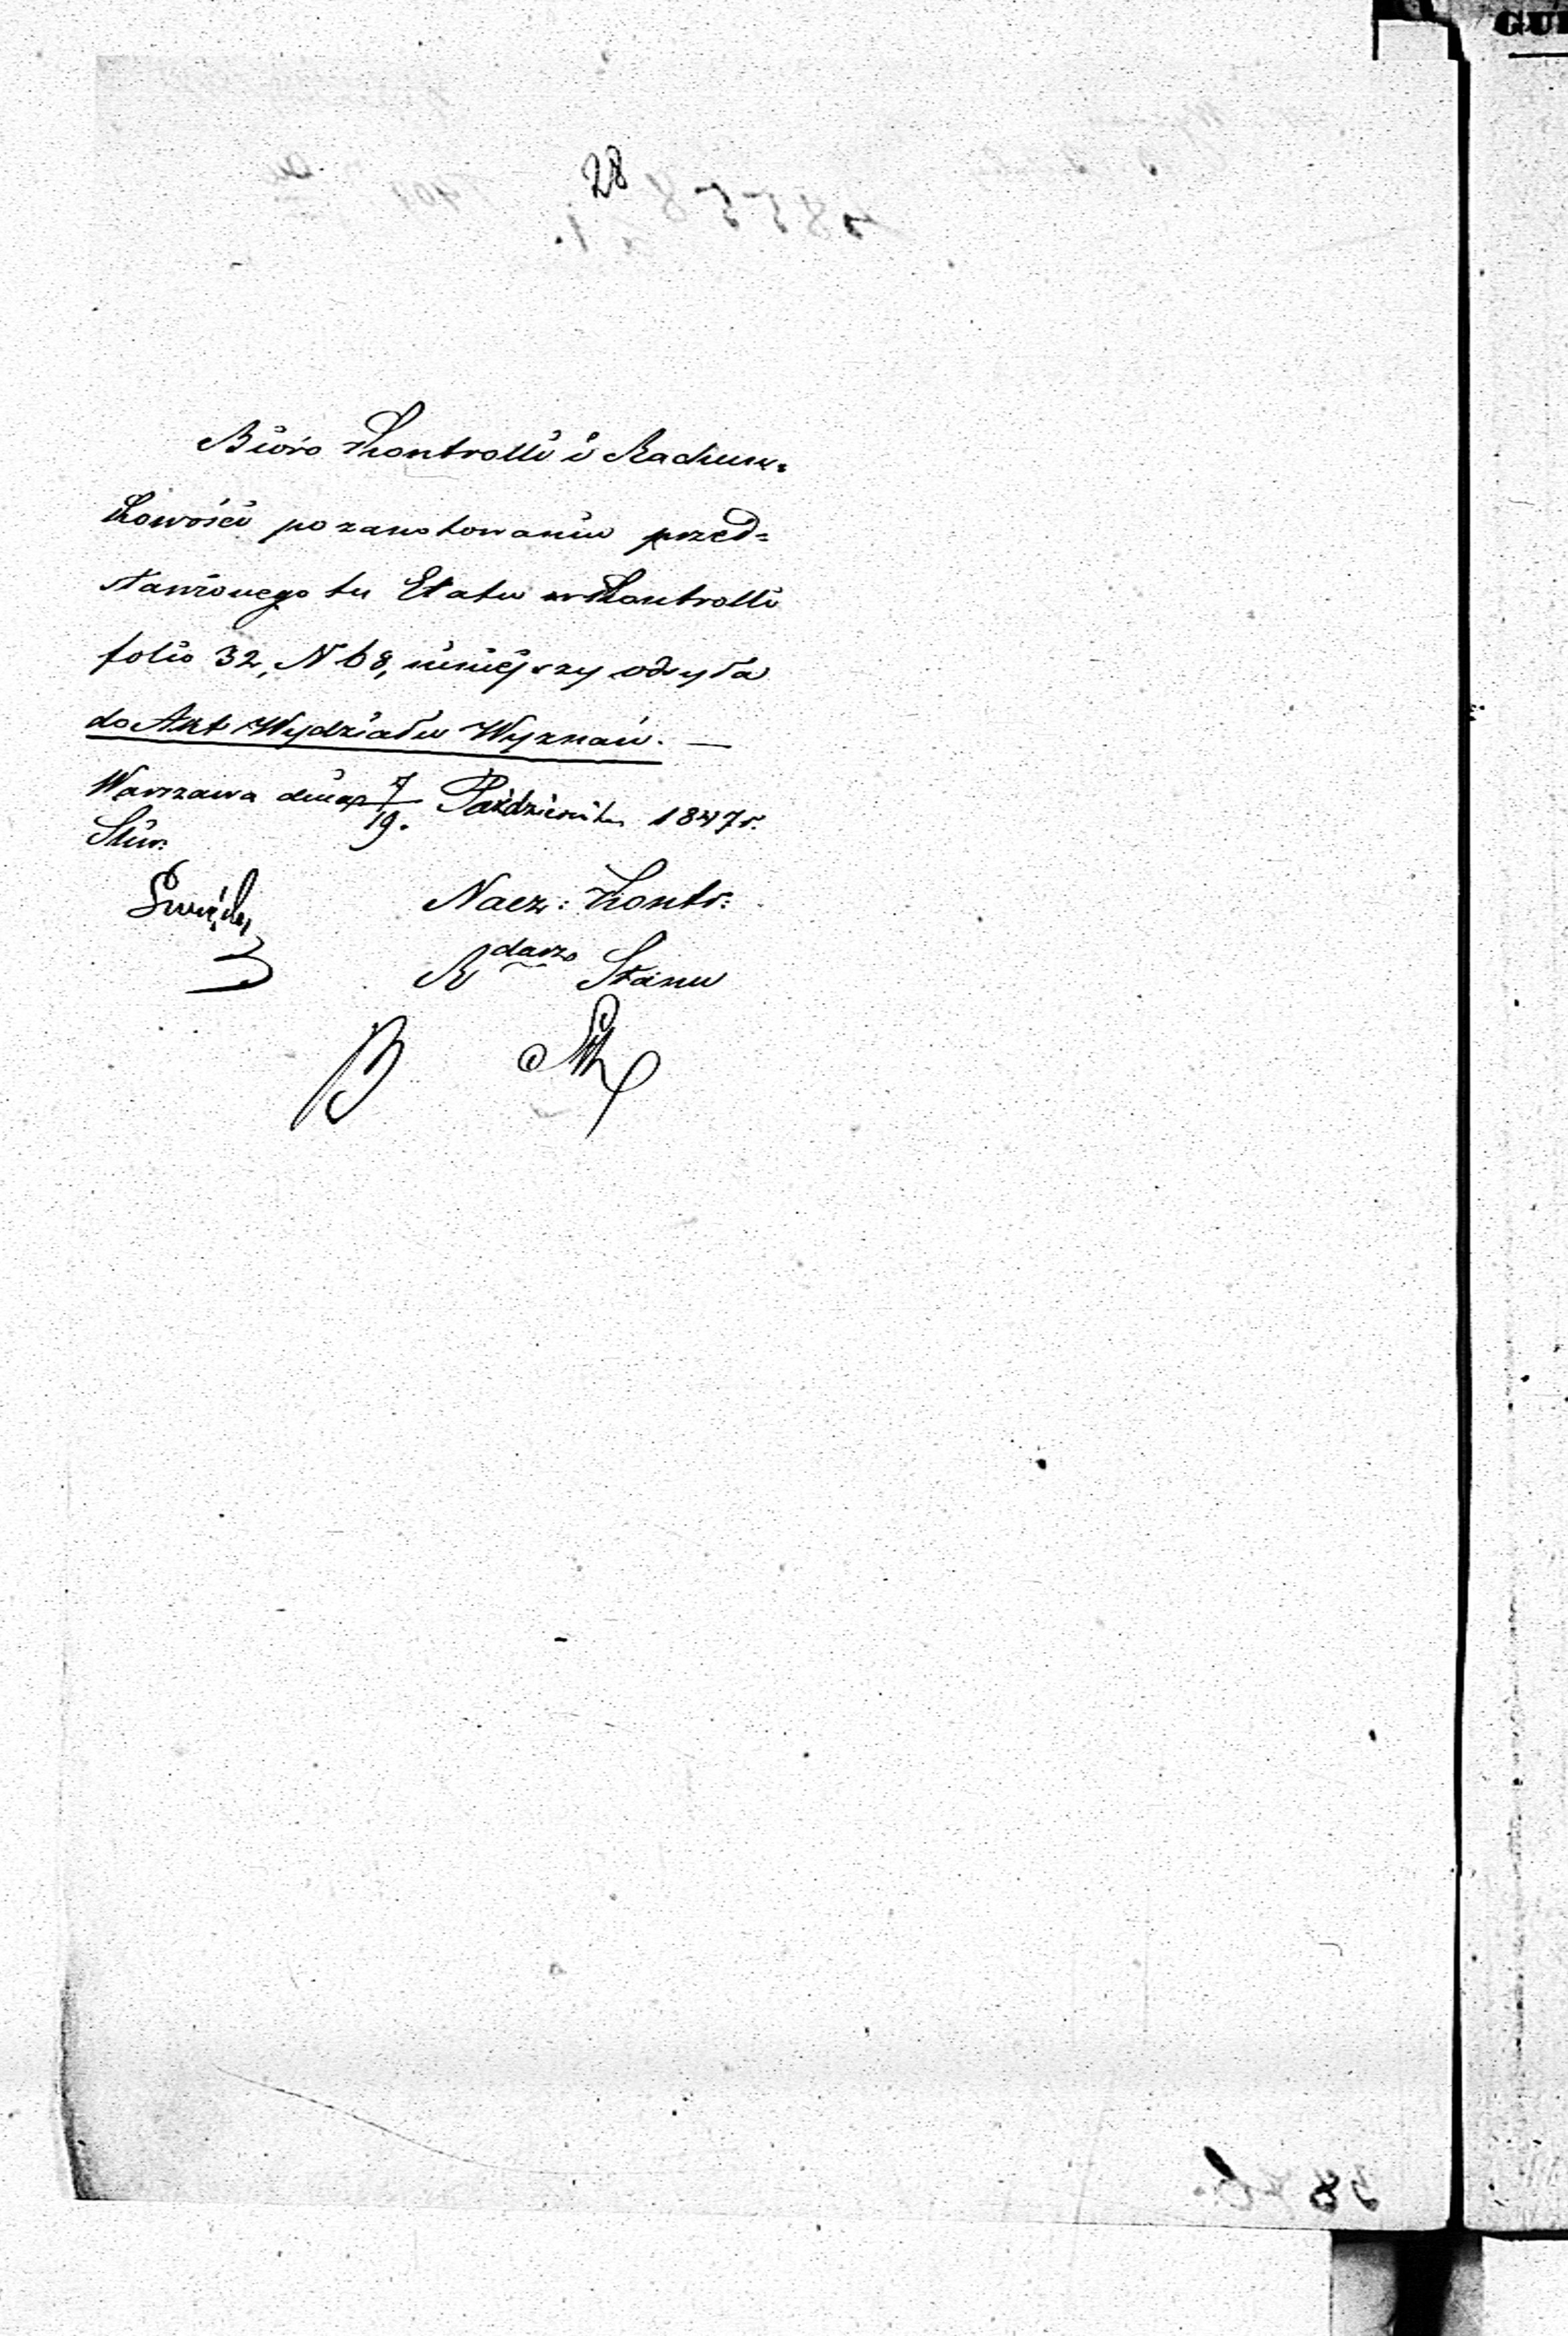 28
Bióro Kontrolli i Rachun-
kowości po zanotowaniu przed=
stawionego tu Etatu w Kontrolli
folio 32, N 68, niniejszy odsyła
do Akt Wydziału Wyznań. —
Warszawa dnia 7/19. Października 1847 r.
Nacz: Kontr:
R darz Stanu
B
GU